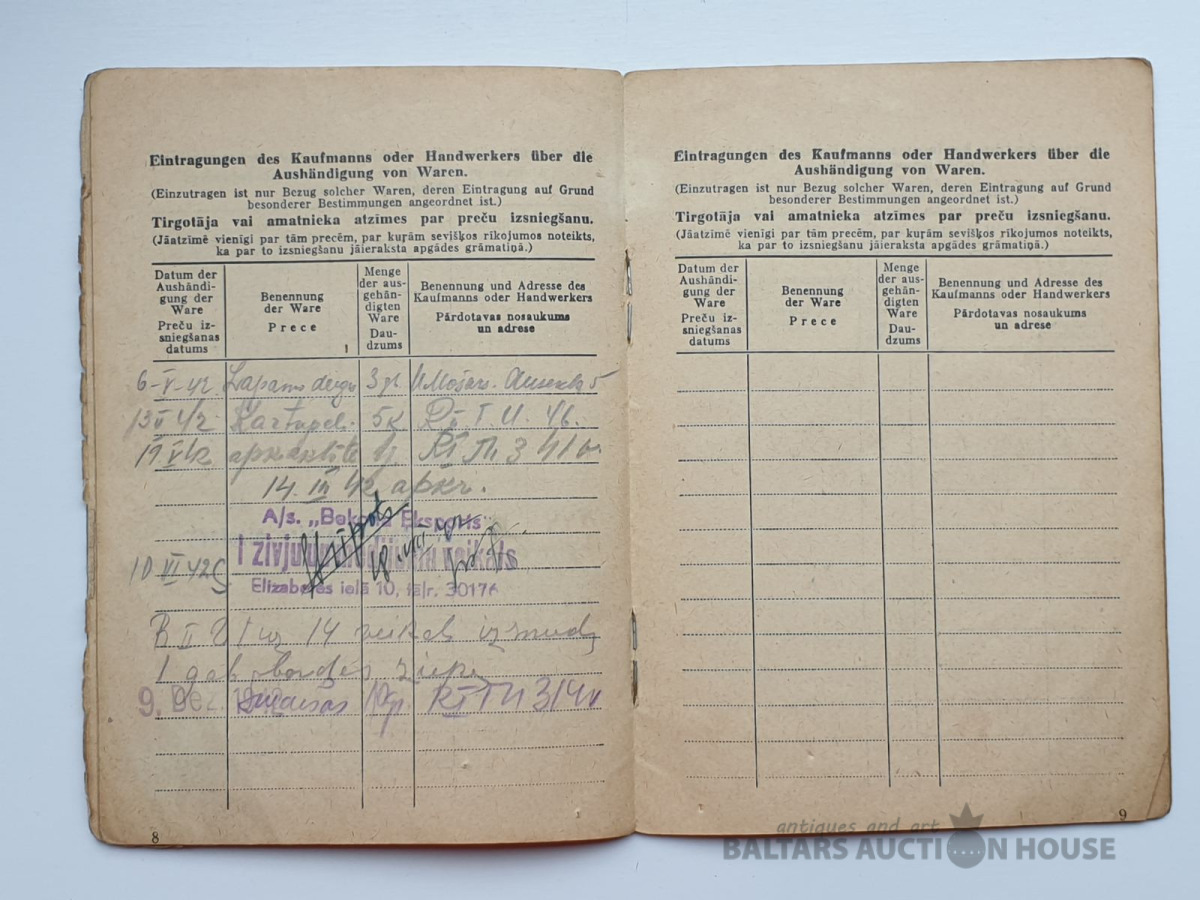 Eintragungen des Kaufmanns oder Handwerkers über die
Aushändigung von Waren.
(Einzutragen ist nur Bezug solcher Waren, deren Eintragung auf Grund
besonderer Bestimmungen angeordnet ist.)
Tirgotāja vai amatnieka atzīmes par preču izsniegšanu.
(Jāatzīmē vienīgi par tām precēm, par kuŗām sevišķos rīkojumos noteikts,
ka par to izsniegšanu jāieraksta apgādes grāmatiņā.)
Datum der
Aushändi-
gung der
Ware
Preču iz-
sniegšanas
datums
Benennung
der Ware
Prece
Menge
der aus-
gehän-
digten
Ware
Dau-
dzums
Benennung und Adresse des
Kaufmanns oder Handwerkers
Pārdotavas nosaukums
un adrese
6-V-42 3 5
13 42 5k 46.
19
14 III 42 apkr.
A/s. „Bekona Eksports"
10 VI 42
Elizabetes ielā 10, tālr. 30176
14
1 gab ziepe
9. Dez. 1942
8
Eintragungen des Kaufmanns oder Handwerkers über die
Aushändigung von Waren.
(Einzutragen ist nur Bezug solcher Waren, deren Eintragung auf Grund
besonderer Bestimmungen angeordnet ist.)
Tirgotāja vai amatnieka atzīmes par preču izsniegšanu.
(Jāatzīmē vienīgi par tām precēm, par kuŗām sevišķos rīkojumos noteikts,
ka par to izsniegšanu jāieraksta apgādes grāmatiņā.)
Datum der
Aushändi-
gung der
Ware
Preču iz-
sniegšanas
datums
Benennung
der Ware
Prece
Menge
der aus-
gehän-
digten
Ware
Dau-
dzums
Benennung und Adresse des
Kaufmanns oder Handwerkers
Pārdotavas nosaukums
un adrese
9
antiques and art
BALTARS AUCTION HOUSE